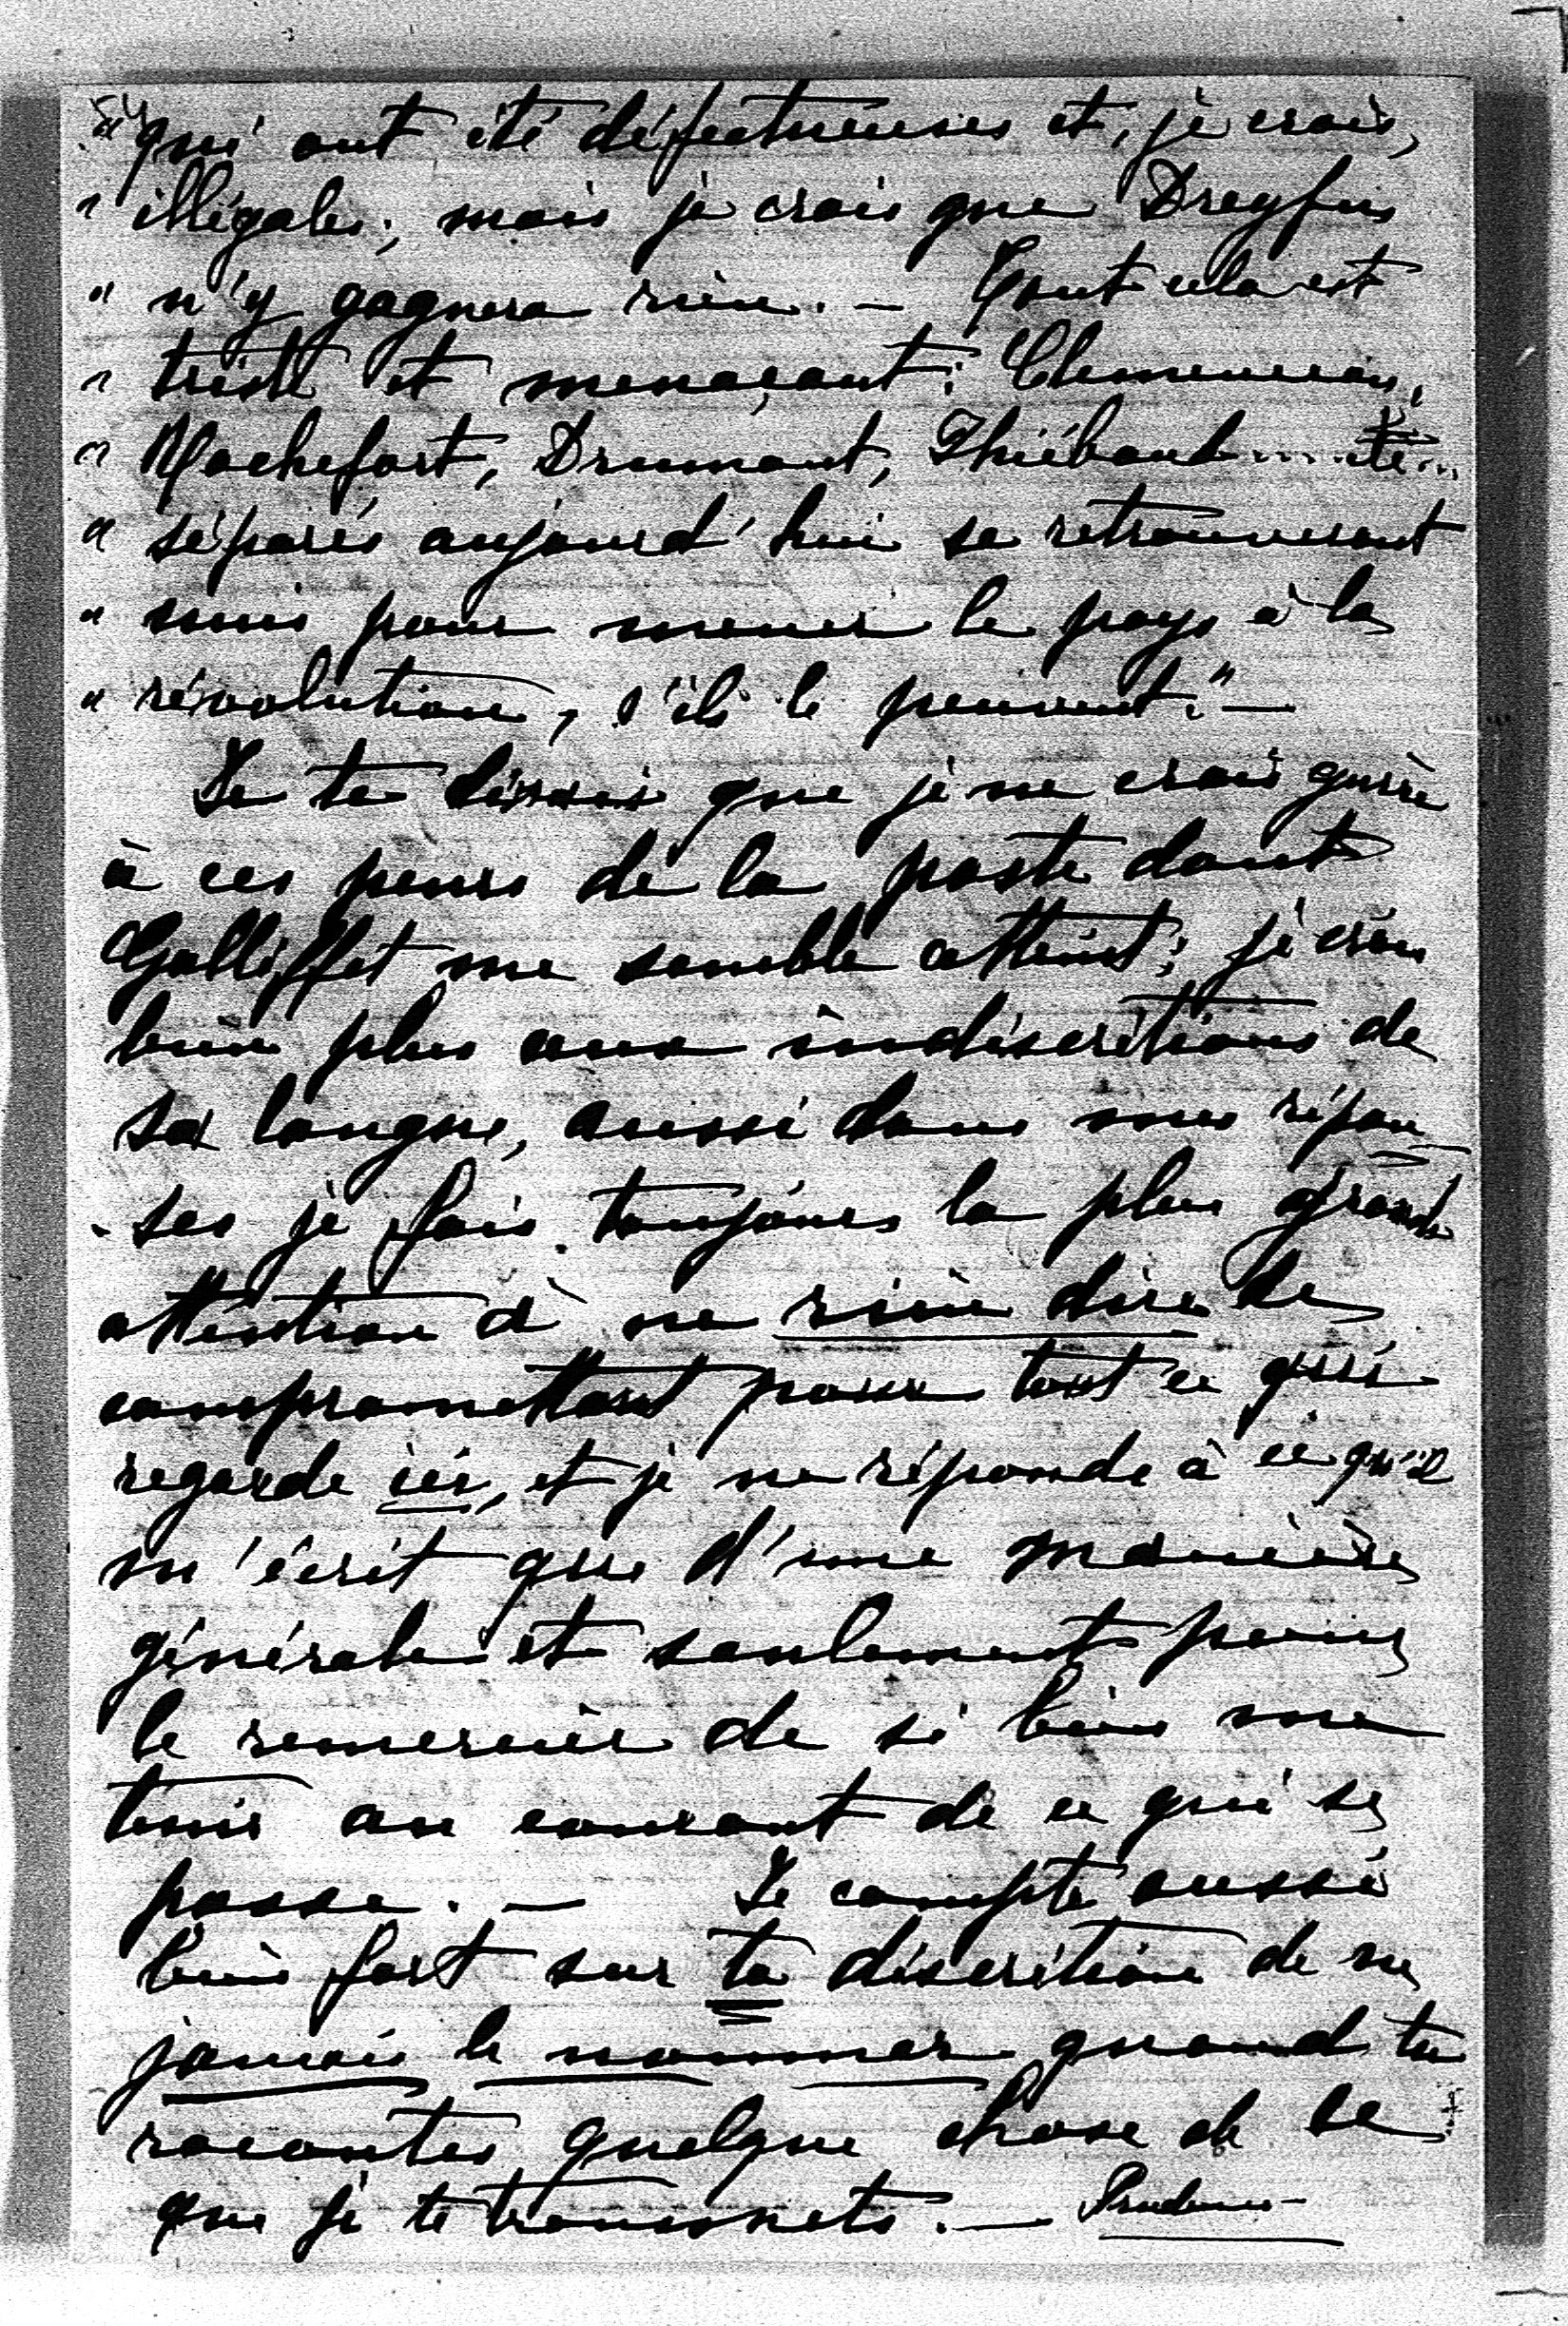 " qui ont été défectueuses et, je crois,
" illégales; mais je crois que Dreyfus
" n'y gagnera rien. — Tout cela est
" triste et menaçant: Clemenceau,
" Rochefort, Drumont, Thiébaud.... etc...
" séparés aujourd'hui se retrouveront
" unis pour mener le pays à la
" révolution, s'ils le peuvent." —
Je te dirais que je ne crois guère
à ces peurs de la poste dont
Galliffet me semble atteint; je crois
bien plus aux indiscrétions de
sa langue, aussi dans mes répon-
-ses je fais toujours la plus grande
attention à ne rien dire de
compromettant pour tout ce qui
regarde ici, et je ne réponds à ce qu'il
m'écrit que d'une manière
générale et seulement pour
le remercier de si bien me
tenir au courant de ce qui se
passe. — Je compte aussi
bien fort sur ta discrétion de ne
jamais le nommer quand tu
racontes quelque chose de ce
que je te transmets. — Prudence